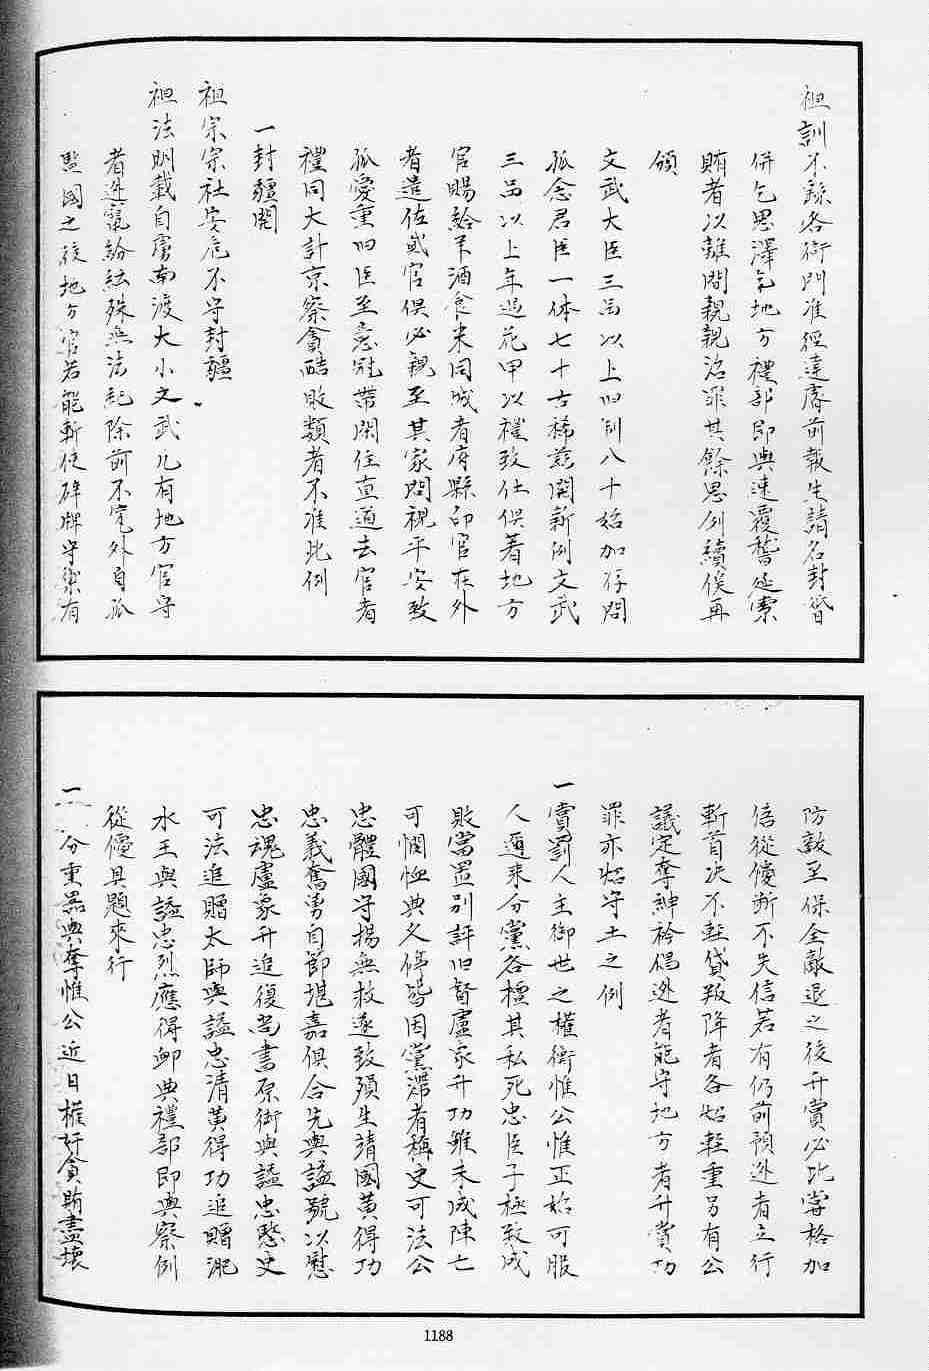 祖訓不錄各衙門准徑達廥前報生請名封昏
併乞恩澤氣地方禮部即與速覆誓延索
賄者以離間親親治罪其餘恩例續俟再
頒
文武大臣三品以上旧例八十始加存問
孤念君臣一体七十古稀玆開新例文武
三品以上年過花甲以禮致仕俱著地方
官賜給羊酒食米同城者府縣印官在外
者遣佐貳官俱必親至其家問視平安致
孤愛重旧臣至意冠帶閑住直道去官者
禮同大計京察貪酷敗類者不准此例
一封疆関
祖宗宗社安危不守封疆
祖法明載自虜南渡大小文武凡有地方官守
者迯竄紛紜殊無法紀除前不究外自孤
監國之後地方官若能斬使碎牌守禦有
防敵至保全敵退之後升賞必比嘗格加
倍從優斷不失信若有仍前預迯者立行
斬首决不輕貸叛降者各炤輕重另有公
議定奪紳衿倡迯者能守地方者升賞功
罪亦炤守土之例
一賞罰人主御世之權衡惟公惟正始可服
人邇來分黨各檀其私死忠臣子極致成
敗當置別評旧督盧象升功雖未成陳亡
可憫恤典久停皆因黨滯者稱史可法公
忠體國守揚無救遂致殞生靖國黃得功
忠義奮勇自節堪嘉俱合先與諡號以慰
忠魂盧象升追復尚書原銜與諡忠愍史
可法追贈太師與諡忠清黃得功追贈淝
水王與諡忠烈應得卹典禮部即與察例
從優具題來行
一分重器與奪惟公近日權奸貪賄盡壞
1188